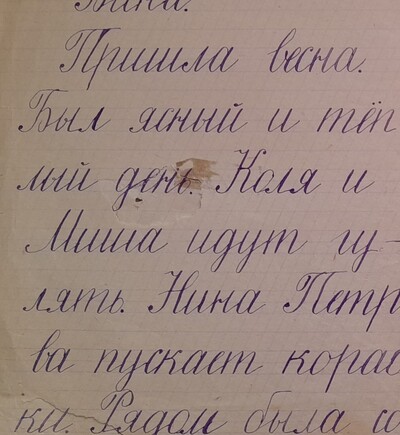 Пришла весна.
Был ясный и тёп
лый день. Коля и
Миша идут гу-
лять. Нина Петр
ва пускает корае
ки. Рядом была